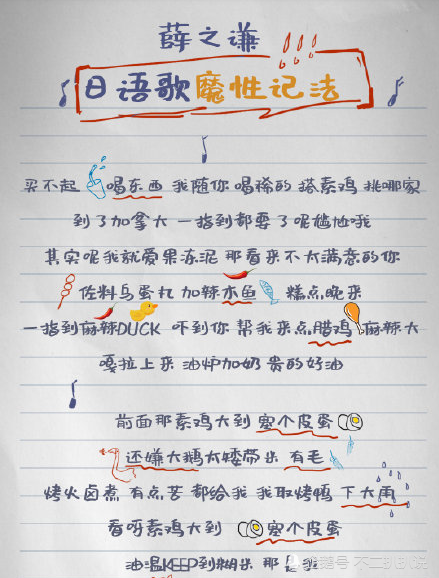 薛之谦
日语歌魔性记法
买不起 喝东西 我随你喝稀的 搭素鸡 挑哪家
到了加拿大 一指到都要了呢尴尬哦
其实呢我就爱果冻泥 那看来不太满意的你
佐料乌蛋丸 加辣木鱼 糕点晚来
一指到麻辣DUCK 吓到你 帮我来点腊鸡 麻辣大
嘎拉上来 油炉加奶贵的好油
前面那素鸡大到 塞个皮蛋
还嫌大鹅太矮带出 有毛
烤火卤煮 有点苦 都给我 我取烤鸭 下大雨
看呀素鸡大到 塞个皮蛋
油温KEEP到糊出 那